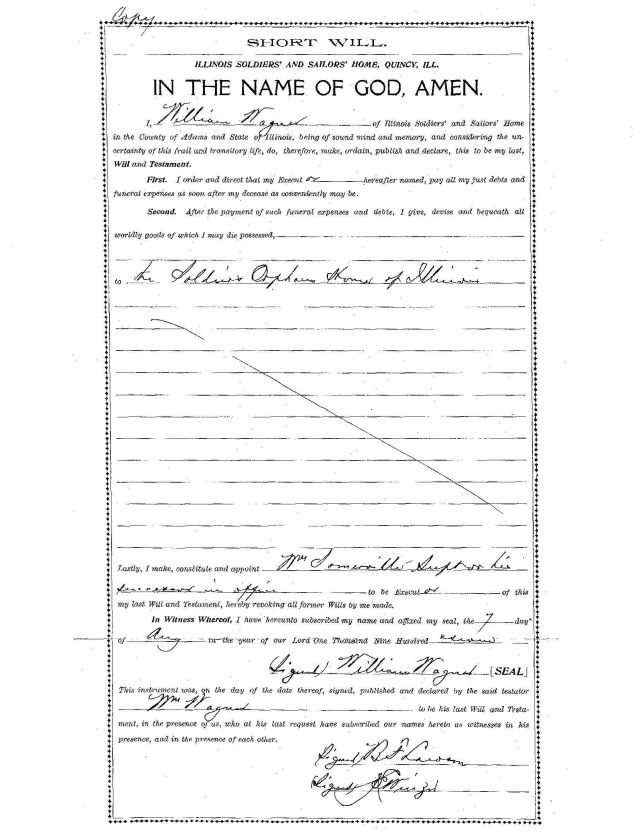 Copy
SHORT WILL.
ILLINOIS SOLDIERS' AND SAILORS' HOME, QUINCY, ILL.
IN THE NAME OF GOD, AMEN.
I, William Wagner of Illinois Soldiers' and Sailors' Home
in the County of Adams and State of Illinois, being of sound mind and memory, and considering the un-
certainty of this frail and transitory life, do, therefore, make, ordain, publish and declare, this to be my last,
Will and Testament.
First. I order and direct that my Execut or hereafter named, pay all my just debts and
funeral expenses as soon after my decease as conveniently may be.
Second. After the payment of such funeral expenses and debts, I give, devise and bequeath all
worldly goods of which I may die possessed,
to the Soldiers Orphans Home of Illinois
Lastly, I make, constitute and appoint Wm Somerville Supt or his
successors in office to be Execut or of this
my last Will and Testament, hereby revoking all former Wills by me made.
In Witness Whereof, I have hereunto subscribed my name and affixed my seal, the 7 day
of Aug in the year of our Lord One Thousand Nine Hundred
Signed William Wagner [SEAL]
This instrument was, on the day of the date thereof, signed, published and declared by the said testator
Wm Wagner to be his last Will and Testa-
ment, in the presence of us, who at his last request have subscribed our names hereto as witnesses in his
presence, and in the presence of each other.
Signed Lawson
Signed